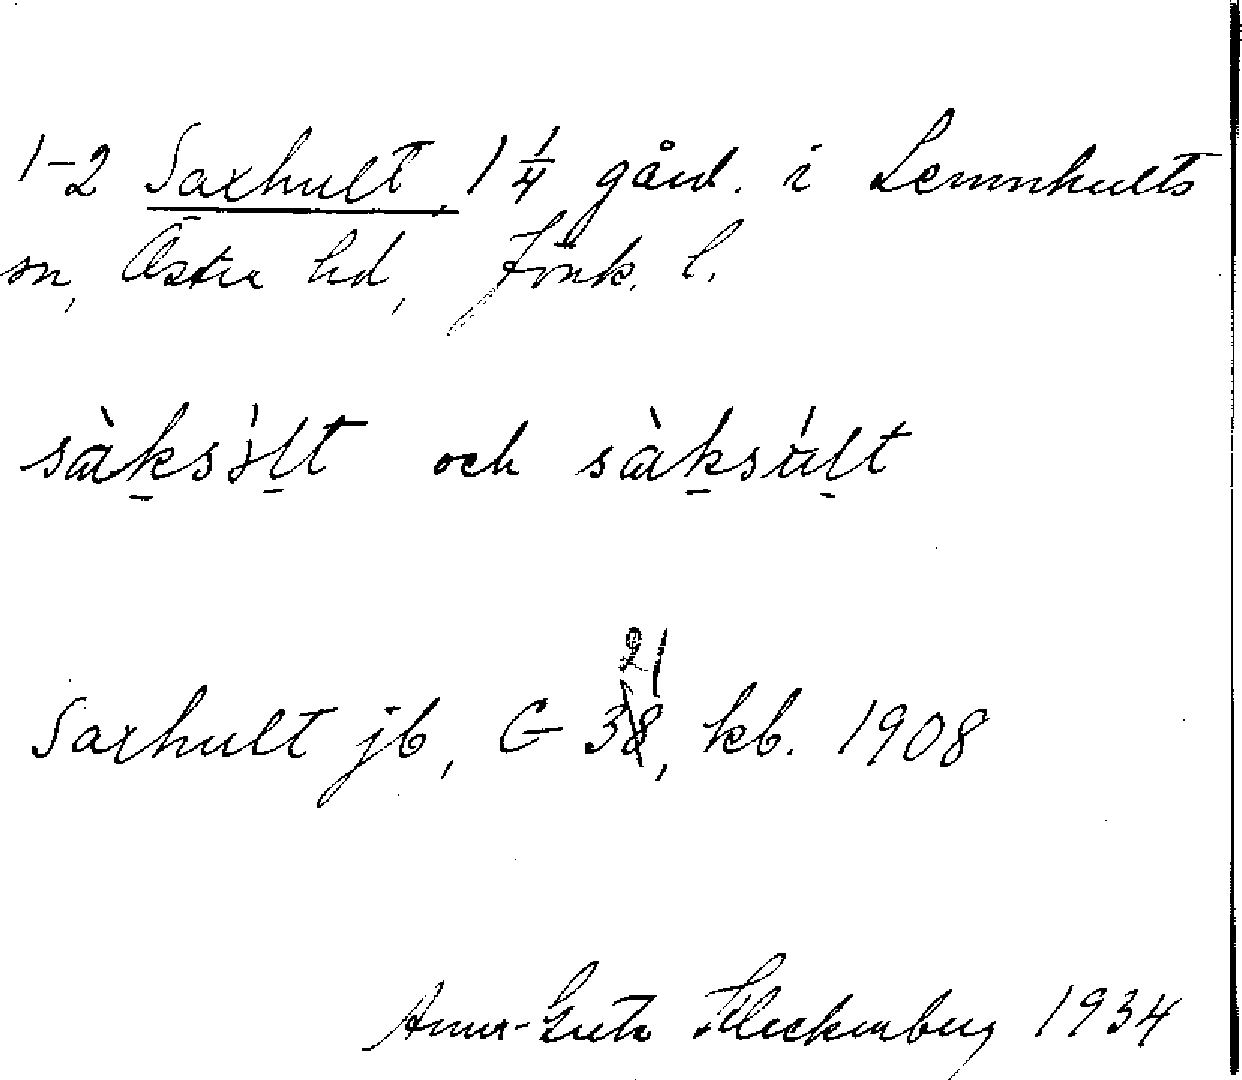 1-2 Saxhult, 1 1/4 gård. i Lemnhults
sn, Östra hd, Jönk. l.
sàksə̀lt och sàksúlt
21
Saxhult jb, G 38, kb. 1908
Anna-Greta 1934